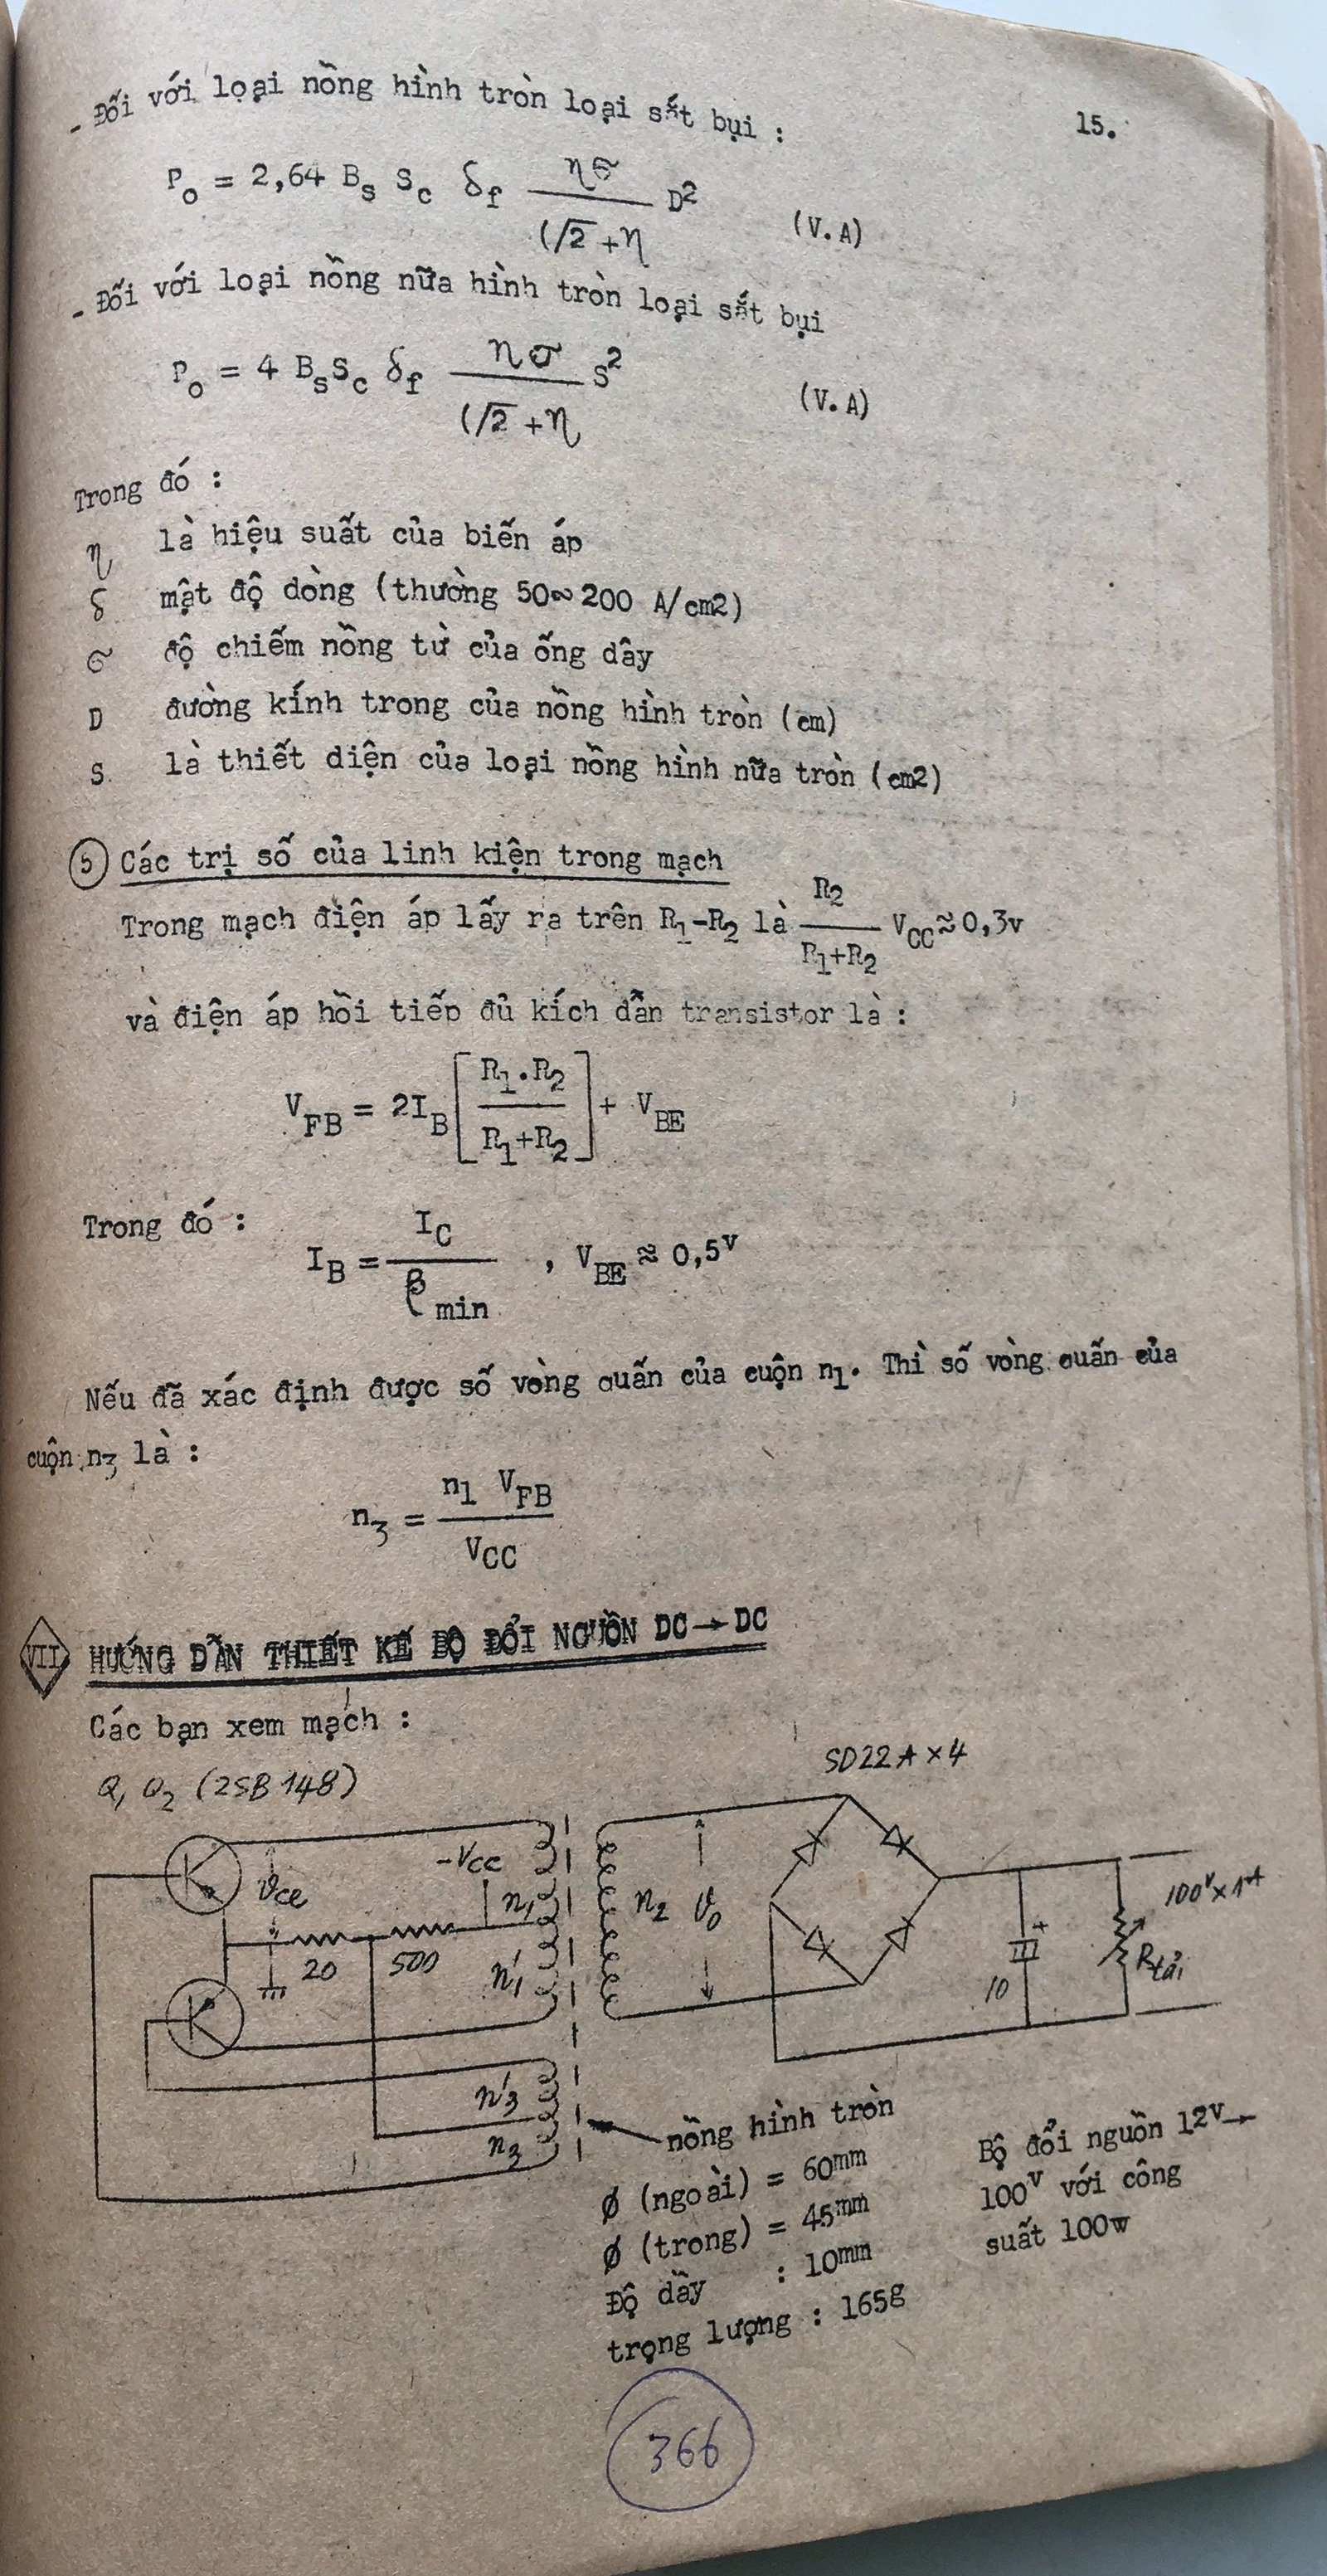 15.
- Đối với loại nồng hình tròn loại sắt bụi :
P₀ = 2,64 Bₛ S꜀ δf ησ / (√2 + η D² (V.A)
- Đối với loại nồng nữa hình tròn loại sắt bụi
P₀ = 4 BₛS꜀ δf ησ / (√2 + η S² (V.A)
Trong đó :
η là hiệu suất của biến áp
δ mật độ dòng (thường 50∾200 A/cm2)
σ độ chiếm nồng từ của ống dây
D đường kính trong của nồng hình tròn (cm)
S là thiết diện của loại nồng hình nữa tròn (cm2)
5 Các trị số của linh kiện trong mạch
Trong mạch điện áp lấy ra trên R₁-R₂ là R₂ / R₁+R₂ VCC ≈ 0,3v
và điện áp hồi tiếp đủ kích dẫn transistor là :
VFB = 2IB [ R₁.R₂ / R₁+R₂ ] + VBE
Trong đó :
IB = IC / β min , VBE ≈ 0,5v
Nếu đã xác định được số vòng quấn của cuộn n₁. Thì số vòng quấn của
cuộn n₃ là :
n₃ = n₁ VFB / VCC
VII HƯỚNG DẪN THIẾT KẾ BỘ ĐỔI NGUỒN DC → DC
Các bạn xem mạch :
SD22A × 4
Q₁ Q₂ (2SB 148)
-Vcc
Vce
n₁
n₂
V₀
100v × 1A
20
500
n'₁
+
10
Rtải
n'₃
n₃
nồng hình tròn
Ø (ngoài) = 60mm
Ø (trong) = 45mm
Độ dầy : 10mm
trọng lượng : 165g
Bộ đổi nguồn 12v→
100v với công
suất 100w
366